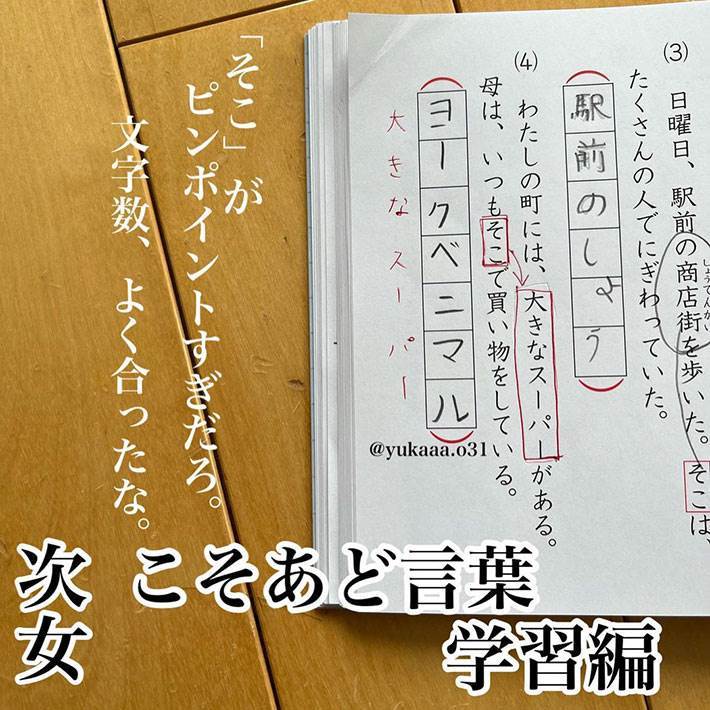 (3) 日曜日、駅前の商店街を歩いた。そこは、
しょうてんがい
たくさんの人でにぎわっていた。
駅前のしょう
(4) わたしの町には、大きなスーパーがある。
母は、いつもそこで買い物をしている。
ヨークベニマル
大きなスーパー
@yukaaa.o31
「そこ」が
ピンポイントすぎだろ。
文字数、よく合ったな。
次女
こそあど言葉
学習編